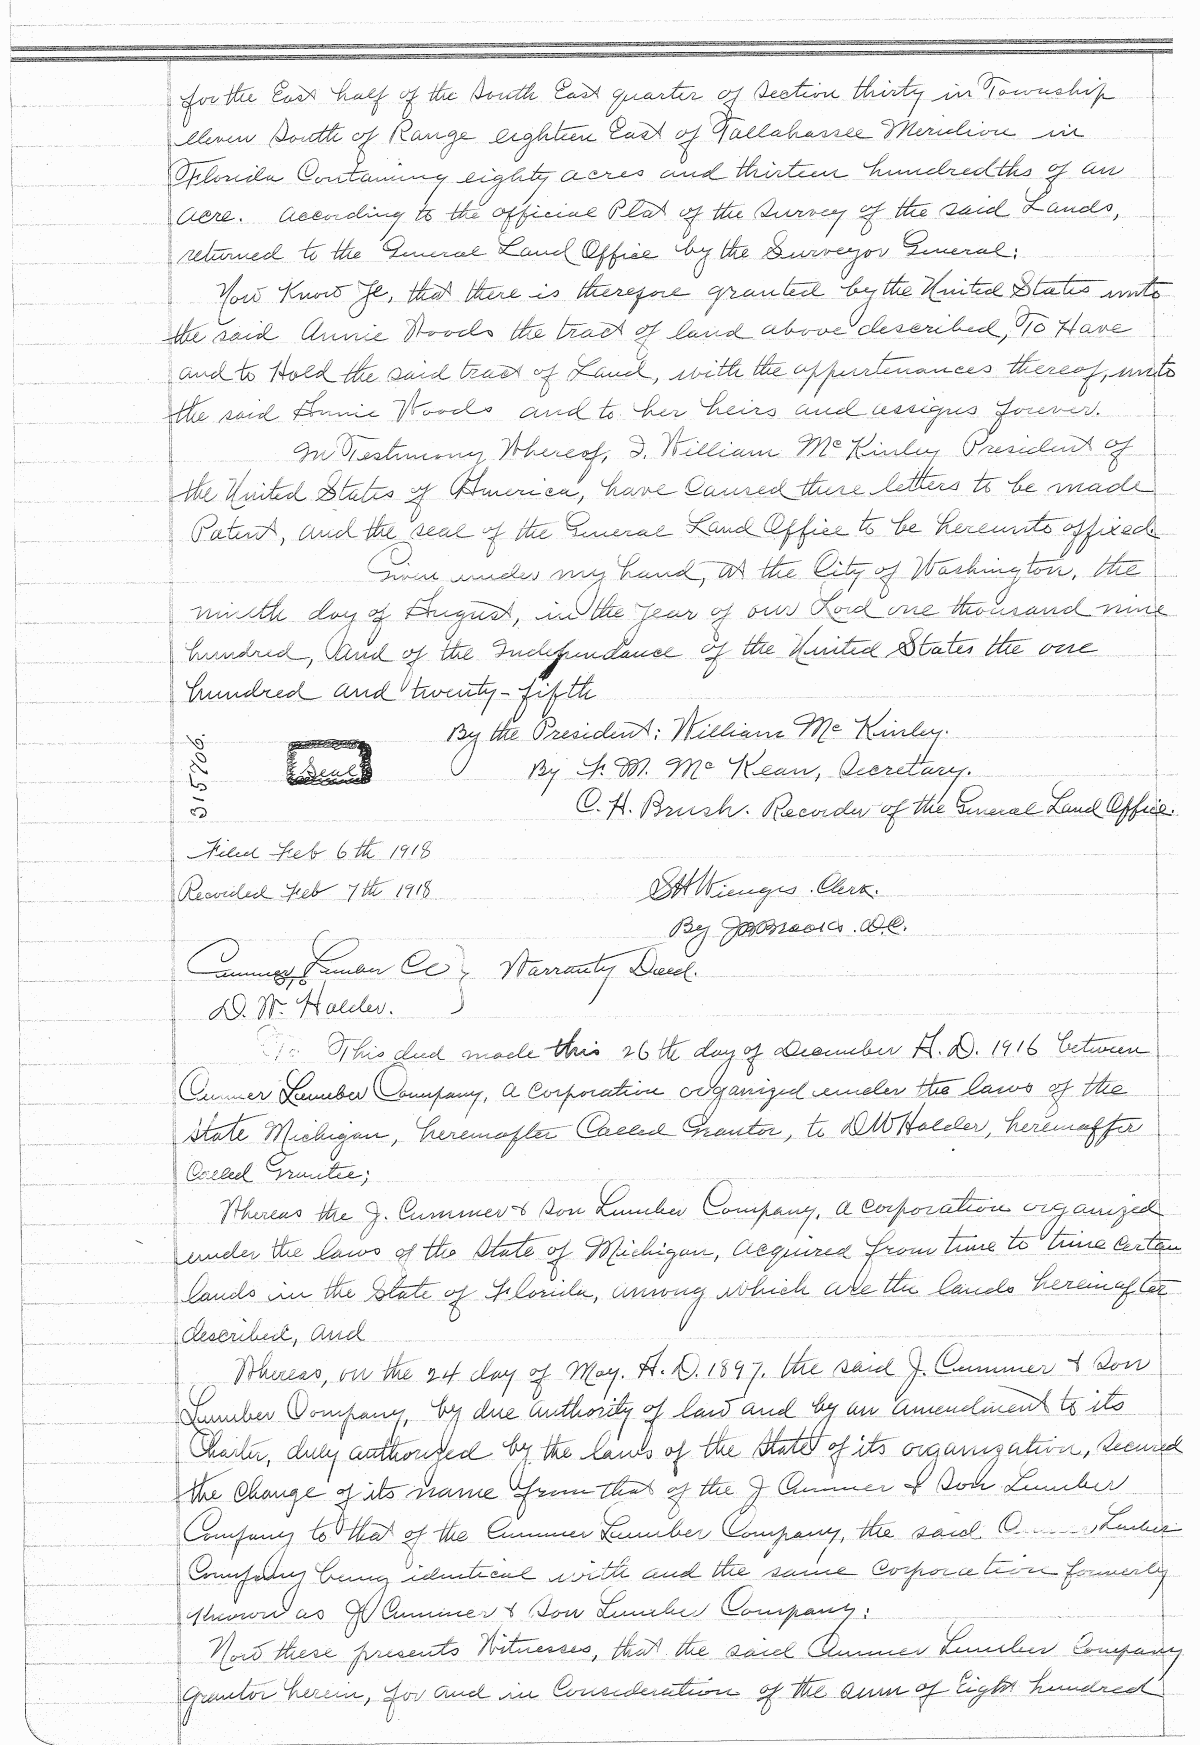 for the East half of the South East quarter of Section thirty in Township
eleven South of Range eighteen East of Tallahassee Meridian in
Florida Containing eighty acres and thirteen hundredths of an
acre. according to the official Plat of the Survey of the said Lands,
returned to the General Land Office by the Surveyor General:
Now Know Ye, that there is therefore granted by the United States unto
the said Annie Woods the tract of land above described, To Have
and to Hold the said tract of Land, with the appurtenances thereof, unto
the said Annie Woods and to her heirs and assigns forever.
In Testimony Whereof, I, William McKinley President of
the United States of America, have Caused these letters to be made
Patent, and the seal of the General Land Office to be hereunto affixed
Given under my hand, at the City of Washington, the
ninth day of August, in the year of our Lord one thousand nine
hundred, And of the Independance of the United States the one
hundred and twenty-fifth
By the President: William McKinley.
Seal
By F. M. McKean, Secretary.
C. H. Brush. Recorder of the General Land Office.
Filed Feb 6th 1918
Recorded Feb 7th 1918
S H Wienges. Clerk.
By J B Brooks. D.C.
Cummer Lumber Co } Warranty Deed.
D. W. Holder.
To This deed made this 26th day of December A. D. 1916 between
Cummer Lumber Company, a corporation organized under the laws of the
State Michigan, hereinafter Called Grantor, to D W Holder, hereinafter
Called Grantee;
Whereas the J. Cummer & Son Lumber Company, a corporation organized
under the laws of the State of Michigan, acquired from time to time certan
lands in the State of Florida, among which are the lands hereinafter
described, and
Whereas, on the 24 day of May. A. D. 1897. the said J. Cummer & Son
Lumber Company, by due authority of law and by an amendment to its
Charter, duly authorized by the laws of the State of its organization, secured
the change of its name from that of the J Cummer & Son Lumber
Company to that of the Cummer Lumber Company, the said Lumber
Company being identical with and the same corporation formerly
known as J Cummer & Son Lumber Company:
Now these presents Witnesses, that the said Cummer Lumber Company
grantor herein, for and in Consideration of the sum of Eight hundred